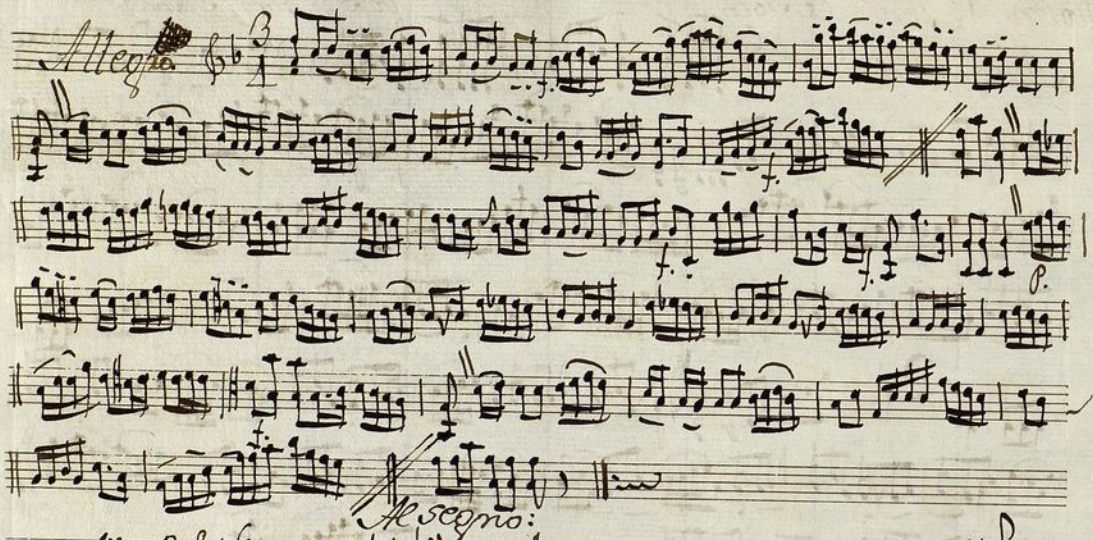 Allegro
3
4
f.
f.
f. f. p.
f.
Al segno: